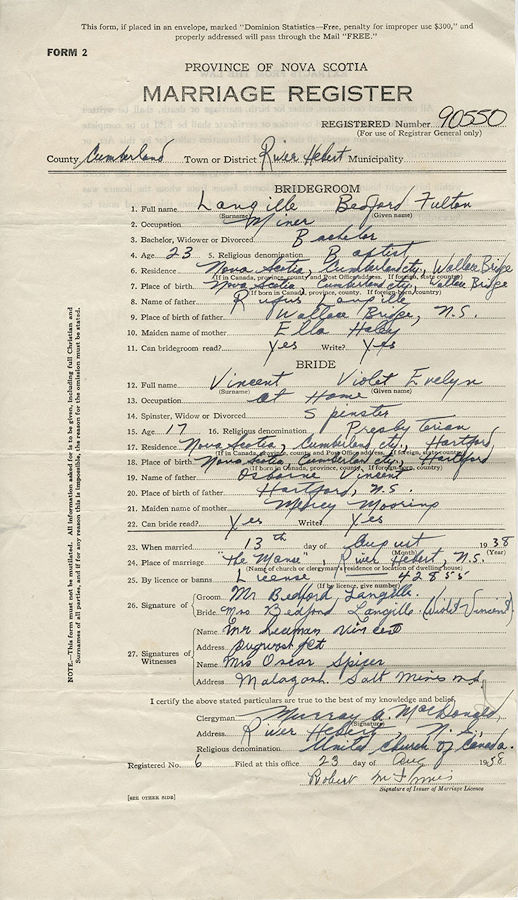 This form, if placed in an envelope, marked "Dominion Statistics—Free, penalty for improper use $300," and
properly addressed will pass through the Mail "FREE."
FORM 2
PROVINCE OF NOVA SCOTIA
MARRIAGE REGISTER
REGISTERED Number 90550
(For use of Registrar General only)
County Cumberland Town or District River Hebert Municipality
BRIDEGROOM
1. Full name Langille Bedford Fulton
(Surname) (Given name)
2. Occupation Miner
3. Bachelor, Widower or Divorced Bachelor
4. Age 23 5. Religious denomination Baptist
6. Residence Nova Scotia, Cumberland cty., Wallace Bridge
(If in Canada, province, county and Post Office address. If foreign, state country)
7. Place of birth Nova Scotia, Cumberland cty., Wallace Bridge
(If born in Canada, province, county. If foreign born, country)
8. Name of father Rufus Langille
9. Place of birth of father Wallace Bridge, N.S.
10. Maiden name of mother Ella Haley
11. Can bridegroom read? Yes Write? Yes
BRIDE
12. Full name Vincent Violet Evelyn
(Surname) (Given name)
13. Occupation at Home
14. Spinster, Widow or Divorced Spinster
15. Age 17 16. Religious denomination Presbyterian
17. Residence Nova Scotia, Cumberland cty., Hartford
(If in Canada, province, county and Post Office address. If foreign, state country)
18. Place of birth Nova Scotia, Cumberland cty., Hartford
(If born in Canada, province, county. If foreign born, country)
19. Name of father Osborne Vincent
20. Place of birth of father Hartford, N.S.
21. Maiden name of mother Mercy Mooring
22. Can bride read? Yes Write? Yes
23. When married 13th day of August 1938
(Month) (Year)
24. Place of marriage "The Manse", River Hebert, N.S.
(Name of church or clergyman's residence or location of dwelling house)
25. By licence or banns License 42855
(If by licence, give number)
26. Signature of
Groom Mr Bedford Langille.
Bride Mrs Bedford Langille (Violet Vincent)
27. Signatures of Witnesses
Name Mr Vincent
Address Pugwash Jct
Name Mrs Oscar Spicer
Address Malagash Salt Mines
I certify the above stated particulars are true to the best of my knowledge and belief,
Clergyman Murray A. MacDonald,
(Signature)
Address River Hebert, N.S.,
Religious denomination United Church of Canada.
Registered No. 6 Filed at this office 23 day of Aug 1938
Robert
Signature of Issuer of Marriage Licence
[SEE OTHER SIDE]
NOTE—This form must not be mutilated. All information asked for is to be given, including full Christian and
Surnames of all parties, and if for any reason this is impossible, the reason for the omission must be stated.